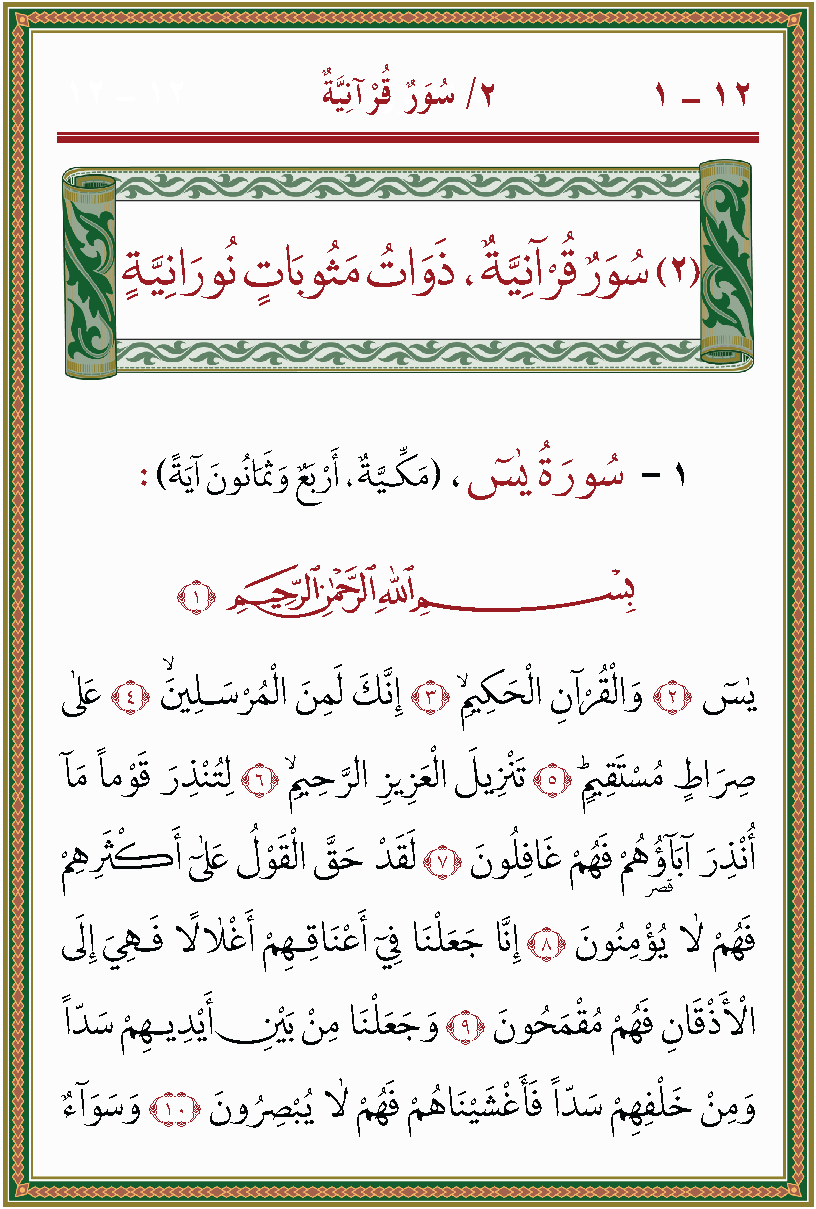 ١ – ١٢ ٢/ سُوَرٌ قُرْآنِيَّةٌ ١٢ – ١٢
(٢) سُوَرٌ قُرْآنِيَّةٌ، ذَوَاتُ مَثُوبَاتٍ نُورَانِيَّةٍ
١ – سُورَةُ يٰسٓ، (مَكِّـيَّةٌ، أَرْبَعٌ وَثَمَانُونَ آيَةً):
بِسْـــمِ ٱللهِ ٱلرَّحْمٰنِ ٱلرَّحِيـمِ ﴿١﴾
يٰسٓ ﴿٢﴾ وَالْقُرْآنِ الْحَكِيمِۙ ﴿٣﴾ إِنَّكَ لَمِنَ الْمُرْسَـلِينَۙ ﴿٤﴾ عَلٰى
صِرَاطٍ مُسْتَقِيمٍۜ ﴿٥﴾ تَنْزِيلَ الْعَزِيزِ الرَّحِيمِۙ ﴿٦﴾ لِتُنْذِرَ قَوْماً مَآ
أُنْذِرَ آبَآؤُهُمْ فَهُمْ غَافِلُونَ ﴿٧﴾ لَقَدْ حَقَّ الْقَوْلُ عَلٰٓى أَكْثَرِهِمْ
قصر
فَهُمْ لاٰ يُؤْمِنُونَ ﴿٨﴾ إِنَّا جَعَلْنَا فِيٓ أَعْنَاقِـهِمْ أَغْلاٰلاً فَـهِيَ إِلَى
الْأَذْقَانِ فَهُمْ مُقْمَحُونَ ﴿٩﴾ وَجَعَلْنَا مِنْ بَيْنِ أَيْدِيـهِمْ سَدّاً
وَمِنْ خَلْفِهِمْ سَدّاً فَأَغْشَيْنَاهُمْ فَهُمْ لاٰ يُبْصِرُونَ ﴿١٠﴾ وَسَوَآءٌ